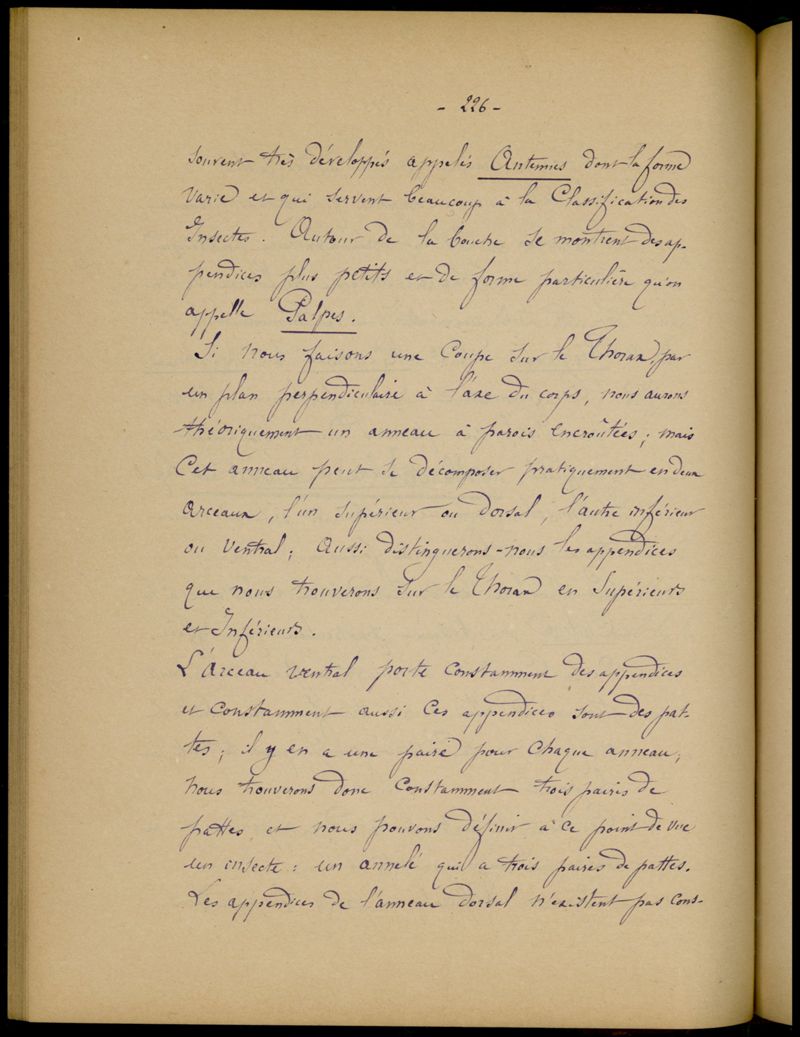 - 226 -
souvent très développés appelés Antennes dont la forme
varie et qui servent beaucoup à la Classification des
Insectes. Autour de la bouche se montrent des ap-
pendices plus petits et de forme particulière qu'on
appelle Palpes.
Si nous faisons une Coupe sur le Thorax, par
un plan perpendiculaire à l'axe du corps, nous aurons
théoriquement un anneau à parois encroûtées ; mais
Cet anneau peut se décomposer pratiquement en deux
arceaux, l'un supérieur ou dorsal, l'autre inférieur
ou Ventral ; Aussi distinguerons-nous les appendices
que nous trouverons sur le Thorax en Supérieurs
et Inférieurs.
L'Arceau ventral porte constamment des appendices
et constamment aussi ces appendices sont des pat-
tes ; il y en a une paire pour chaque anneau ;
nous trouverons donc Constamment trois paires de
pattes et nous pouvons définir à ce point de vue
un insecte : un annelé qui a trois paires de pattes.
Les appendices de l'anneau dorsal n'existent pas cons-